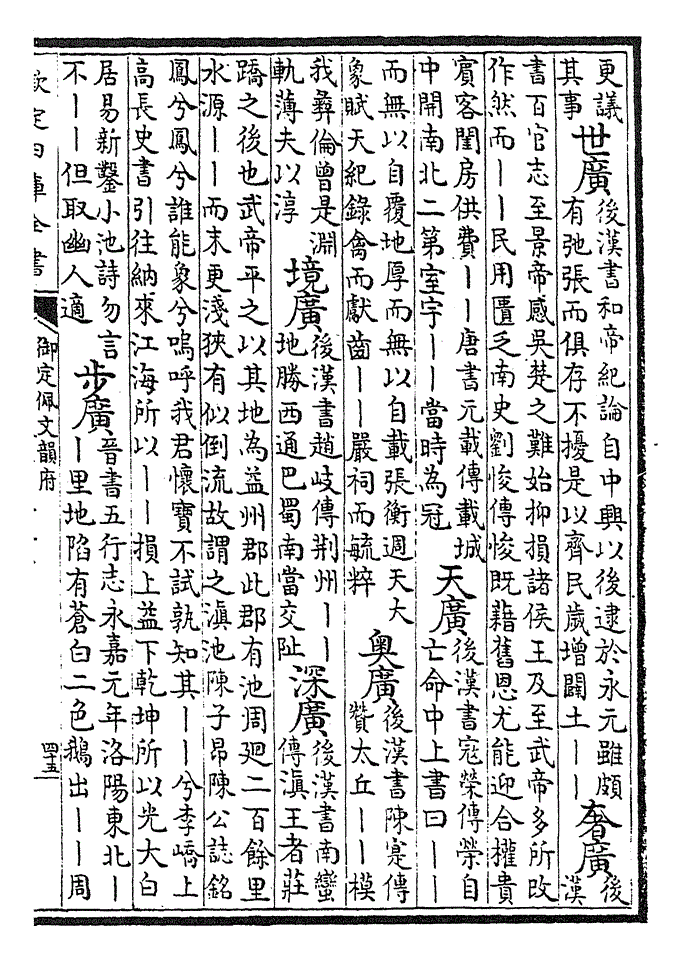 更議
其事
世廣
後漢書和帝紀論自中興以後逮於永元雖頗
有弛張而俱存不擾是以齊民歲增闢土——
奢廣
後
漢
書百官志至景帝感吳楚之難始抑損諸侯王及至武帝多所改
作然而——民用匱乏南史劉悛傳悛既藉舊恩尤能迎合權貴
賓客閨房供費——唐書元載傳載城
中開南北二第室宇——當時為冠
天廣
後漢書寇榮傳榮自
亡命中上書曰——
而無以自覆地厚而無以自載張衡週天大
象賦天紀錄禽而獻齒——嚴祠而毓粹
奥廣
後漢書陳寔傳
贊太丘——模
我彝倫曾是淵
軌薄夫以淳
境廣
後漢書趙岐傳荆州——
地勝西通巴蜀南當交阯
深廣
後漢書南蠻
傳滇王者莊
蹻之後也武帝平之以其地為益州郡此郡有池周廻二百餘里
水源——而末更淺狹有似倒流故謂之滇池陳子昂陳公誌銘
鳳兮鳳兮誰能象兮嗚呼我君懷寶不試孰知其——兮李嶠上
高長史書引往納來江海所以——損上益下乾坤所以光大白
居易新鑿小池詩勿言
不——但取幽人適
步廣
晉書五行志永嘉元年洛陽東北—
—里地陷有蒼白二色鵝出——周
欽定四庫全書
御定佩文韻府
四十五